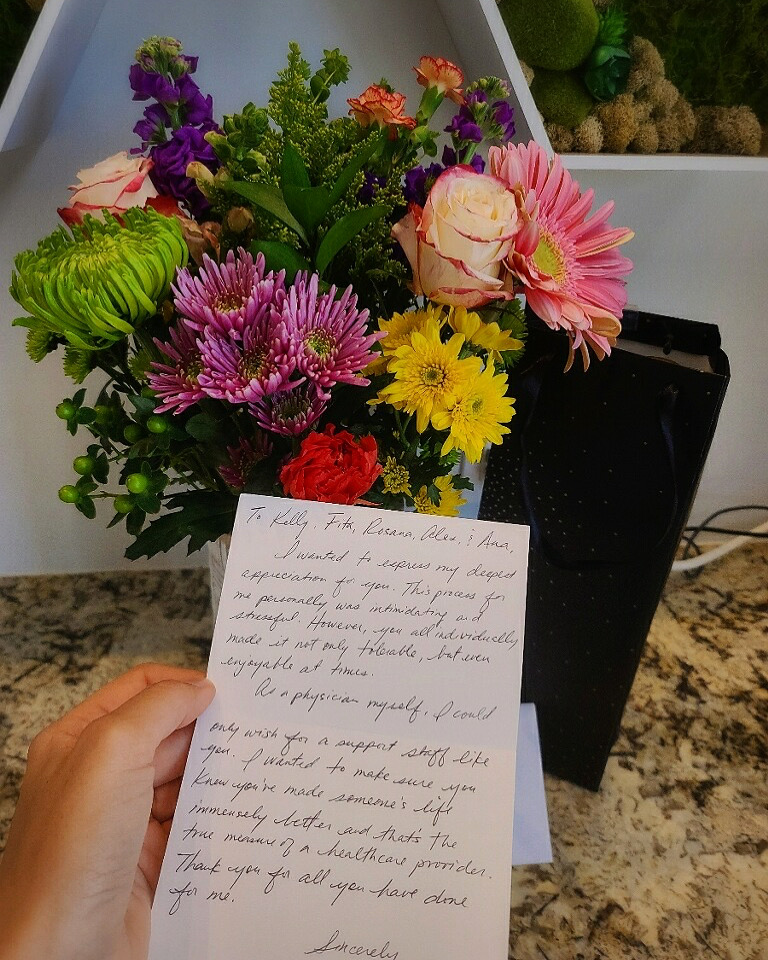 To Kelly, Fita, Rosana, Alex, & Ana,
I wanted to express my deepest
appreciation for you. This process for
me personally was intimidating and
stressful. However, you all individually
made it not only tolerable, but even
enjoyable at times.
As a physician myself, I could
only wish for a support staff like
you. I wanted to make sure you
know you've made someone's life
immensely better and that's the
true measure of a healthcare provider.
Thank you for all you have done
for me.
Sincerely